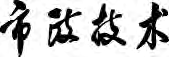 市政技术